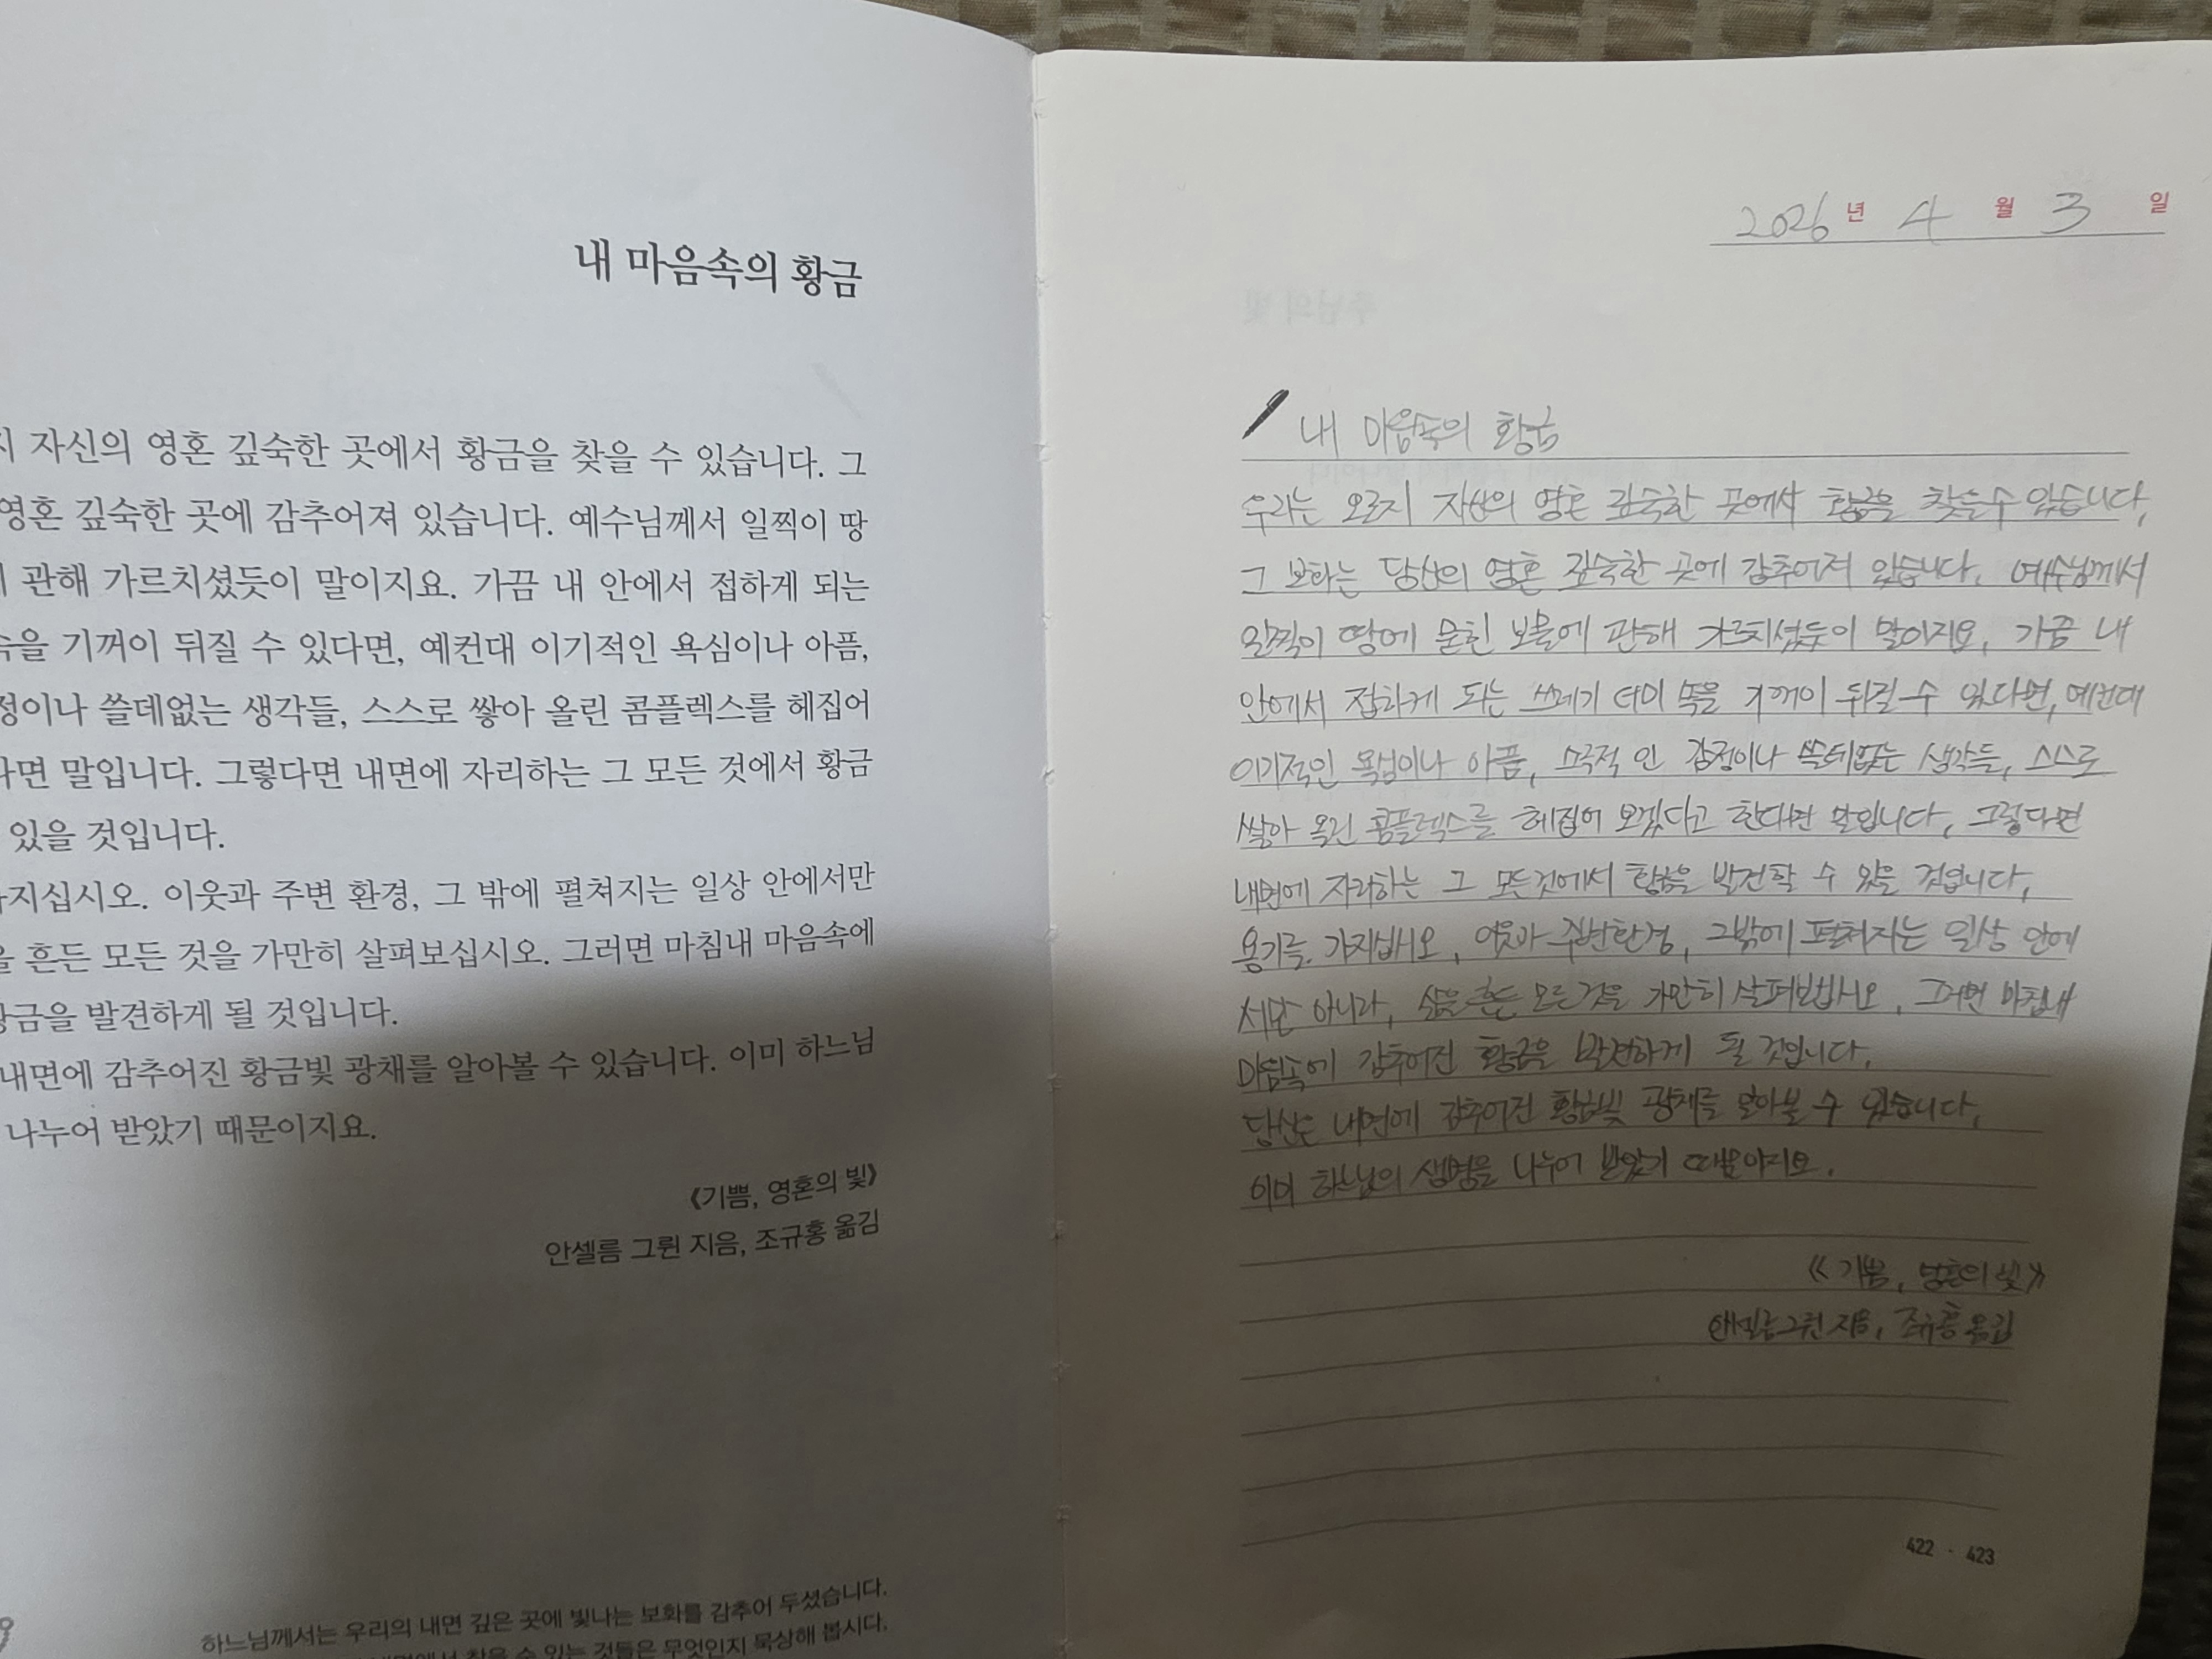 내 마음속의 황금
지 자신의 영혼 깊숙한 곳에서 황금을 찾을 수 있습니다. 그
영혼 깊숙한 곳에 감추어져 있습니다. 예수님께서 일찍이 땅
관해 가르치셨듯이 말이지요. 가끔 내 안에서 접하게 되는
속을 기꺼이 뒤질 수 있다면, 예컨대 이기적인 욕심이나 아픔,
정이나 쓸데없는 생각들, 스스로 쌓아 올린 콤플렉스를 헤집어
다면 말입니다. 그렇다면 내면에 자리하는 그 모든 것에서 황금
있을 것입니다.
가지십시오. 이웃과 주변 환경, 그 밖에 펼쳐지는 일상 안에서만
을 흔든 모든 것을 가만히 살펴보십시오. 그러면 마침내 마음속에
황금을 발견하게 될 것입니다.
내면에 감추어진 황금빛 광채를 알아볼 수 있습니다. 이미 하느님
나누어 받았기 때문이지요.
《기쁨, 영혼의 빛》
안셀름 그륀 지음, 조규홍 옮김
하느님께서는 우리의 내면 깊은 곳에 빛나는 보화를 감추어 두셨습니다.
내면에서 찾을 수 있는 것들은 무엇인지 묵상해 봅시다.
2026년 4월 3일
내 마음속의 황금
우리는 오로지 자신의 영혼 깊숙한 곳에서 황금을 찾을 수 있습니다.
그 보화는 당신의 영혼 깊숙한 곳에 감추어져 있습니다. 예수님께서
일찍이 땅에 묻힌 보물에 관해 가르치셨듯이 말이지요. 가끔 내
안에서 접하게 되는 쓰레기 더미 속을 기꺼이 뒤질 수 있다면, 예컨대
이기적인 욕심이나 아픔, 소극적 인 감정이나 쓸데없는 생각들, 스스로
쌓아 올린 콤플렉스를 헤집어 보겠다고 한다면 말입니다. 그렇다면
내면에 자리하는 그 모든것에서 황금을 발견할 수 있을 것입니다.
용기를 가지십시오. 이웃과 주변환경, 그밖에 펼쳐지는 일상 안에
서만 아니라, 삶을 흔든 모든 것을 가만히 살펴보십시오. 그러면 마침내
마음속에 감추어진 황금을 발견하게 될 것입니다.
당신은 내면에 감추어진 황금빛 광채를 알아볼 수 있습니다.
이미 하느님의 생명을 나누어 받았기 때문이지요.
《기쁨, 영혼의 빛》
안셀름 그륀 지음, 조규홍 옮김
422 · 423